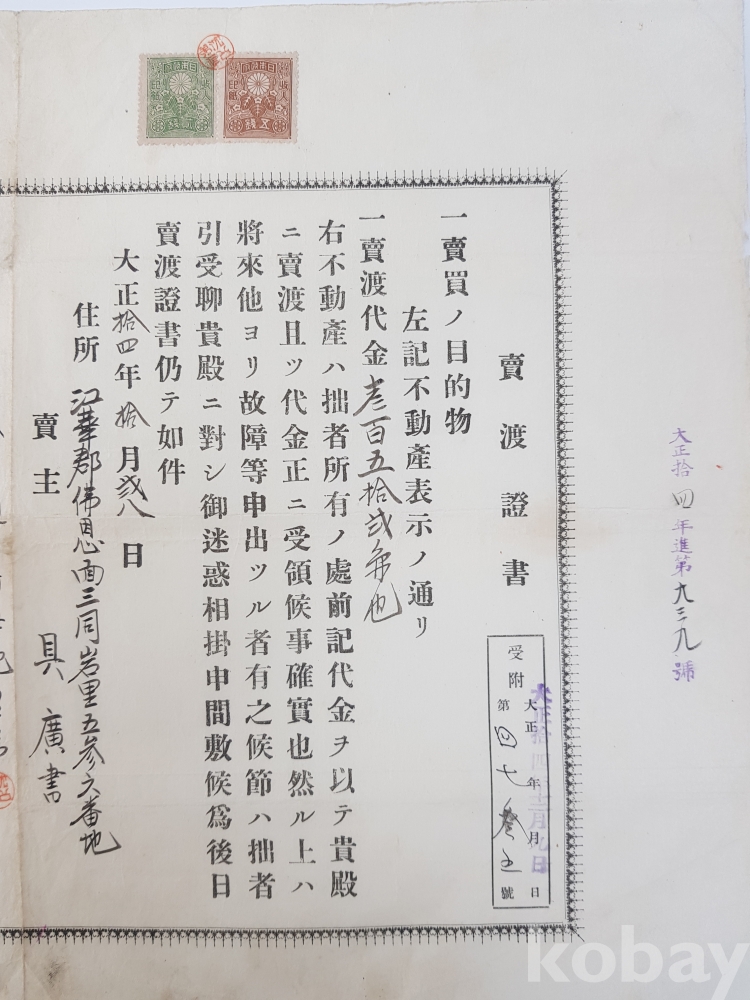 大正拾四年進第九三九號
賣渡證書
受附
大正 年 月 日
大正拾四 十二月九日
第四七 號
一賣買ノ目的物
左記不動產表示ノ通リ
一賣渡代金參百五拾貳 也
右不動產ハ拙者所有ノ處前記代金ヲ以テ貴殿
ニ賣渡且ツ代金正ニ受領候事確實也然ル上ハ
將來他ヨリ故障等申出ツル者有之候節ハ拙者
引受聊貴殿ニ對シ御迷惑相掛申間敷候爲後日
賣渡證書仍テ如件
大正拾四年拾月 日
住所 江華郡佛恩面三同岩里五參六番地
賣主 具廣書
收入
印紙
五錢
收入
印紙
kobay